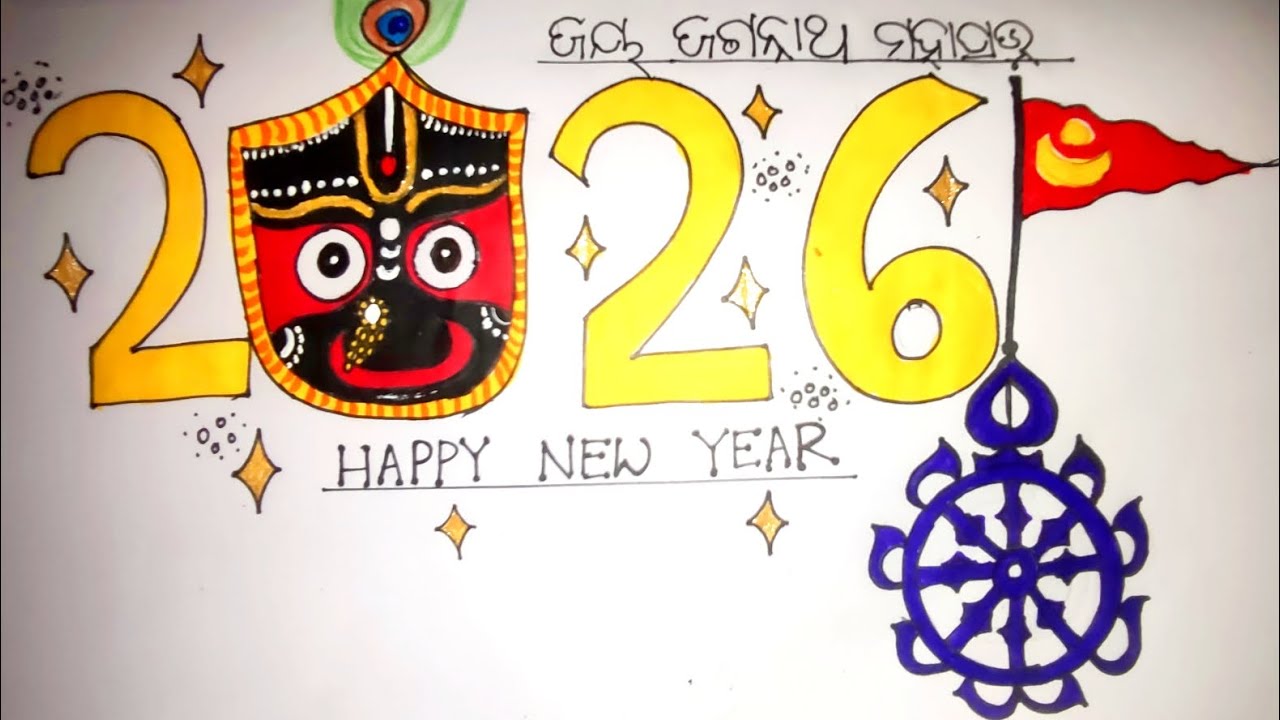 ଜୟ ଜଗନ୍ନାଥ ମହାପ୍ରଭୁ
2026
HAPPY NEW YEAR